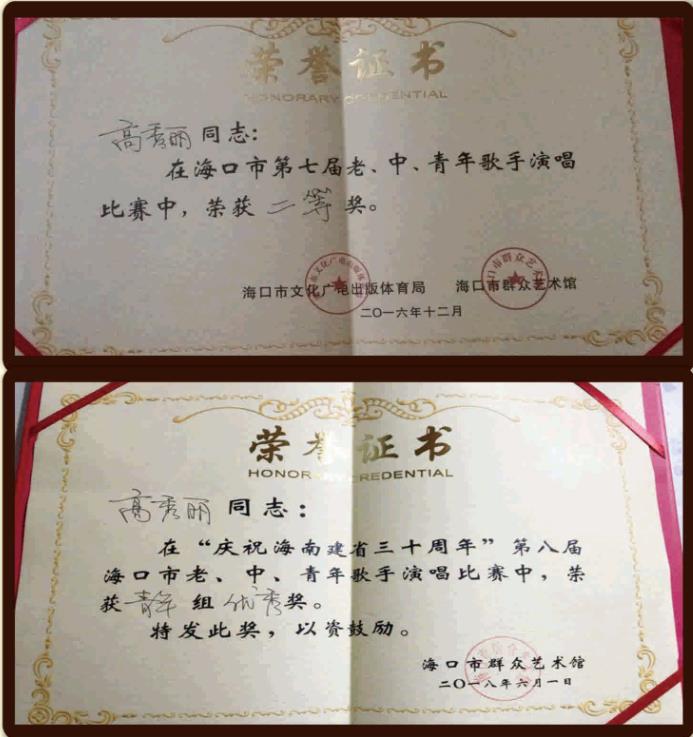 荣誉证书
HONORARY CREDENTIAL
高秀丽同志：
在海口市第七届老、中、青年歌手演唱
比赛中，荣获 二等 奖。
海口市文化广电出版体育局 海口市群众艺术馆
二〇一六年十二月
荣誉证书
HONORARY CREDENTIAL
高秀丽 同志：
在“庆祝海南建省三十周年”第八届
海口市老、中、青年歌手演唱比赛中，荣
获青年组优秀奖。
特发此奖，以资鼓励。
海口市群众艺术馆
二〇一八年六月一日